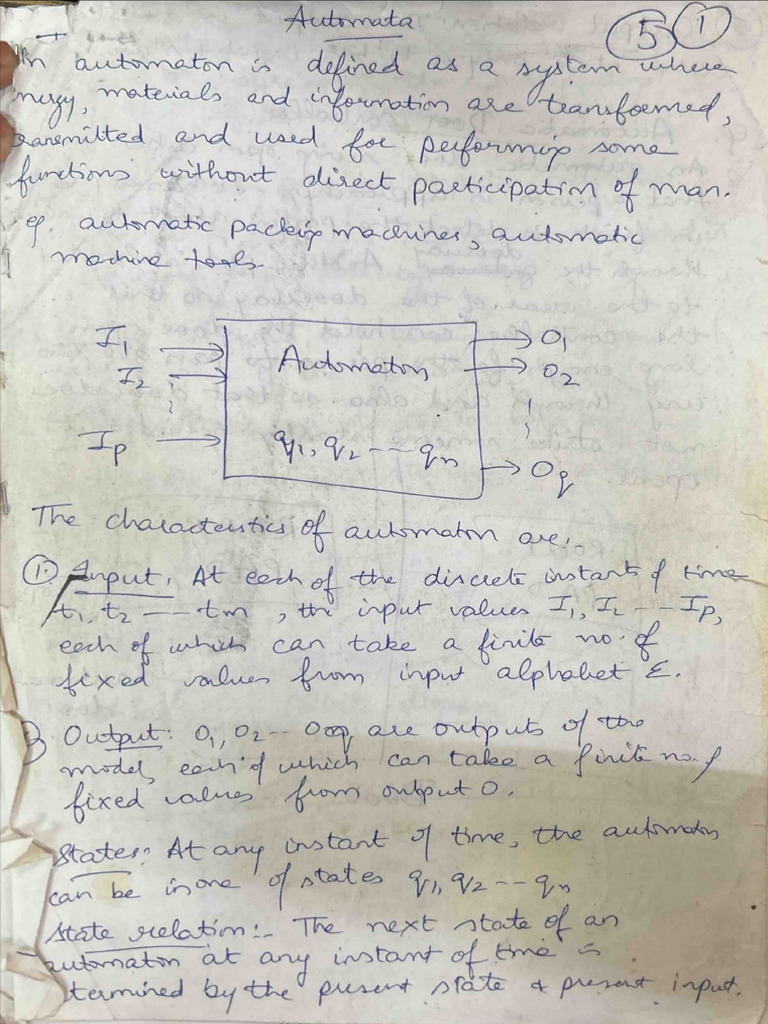 Automata
5 1
An automaton is defined as a system where
energy, materials and information are transformed,
transmitted and used for performing some
functions without direct participation of man.
eg. automatic packing machines, automatic
machine tools.
I1
I2
Ip
Automaton
q1, q2 --- qn
O1
O2
Oq
The characteristics of automaton are:
① Input. At each of the discrete instants of time
t1, t2 --- tm, the input values I1, I2 -- Ip,
each of which can take a finite no. of
fixed values from input alphabet Σ.
Output: O1, O2 -- Oq are outputs of the
model, each of which can take a finite no. of
fixed values from output O.
States: At any instant of time, the automaton
can be in one of states q1, q2 -- qn
State relation:- The next state of an
automaton at any instant of time is
termined by the present state & present input.